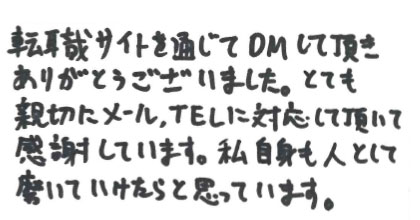 転職サイトを通じてDMして頂き
ありがとうございました。とても
親切にメール,TELに対応して頂いて
感謝しています。私自身も人として
磨いていけたらと思っています。